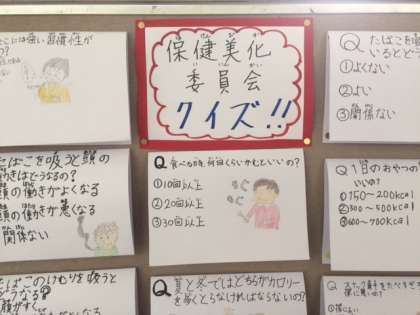 保健美化
委員会
クイズ!!
ほけんびか
いいんかい
たばこには強い習慣性が
Q たばこを
いるとどう
①よくない
②よい
③関係ない
たばこを吸うと頭の
働きはどうなるの？
頭の働きがよくなる
頭の働きが悪くなる
関係ない
Q 食べる時、何回くらいかむといいの？
①10回以上
②20回以上
③30回以上
Q 1日のおやつの
いいの？
①150～200kcal
②300～500kcal
③600～700kcal
たばこのけむりを吸うと
どうなる
Q 夏と冬ではどちらがカロリー
を多くとらなければならないの？
Q